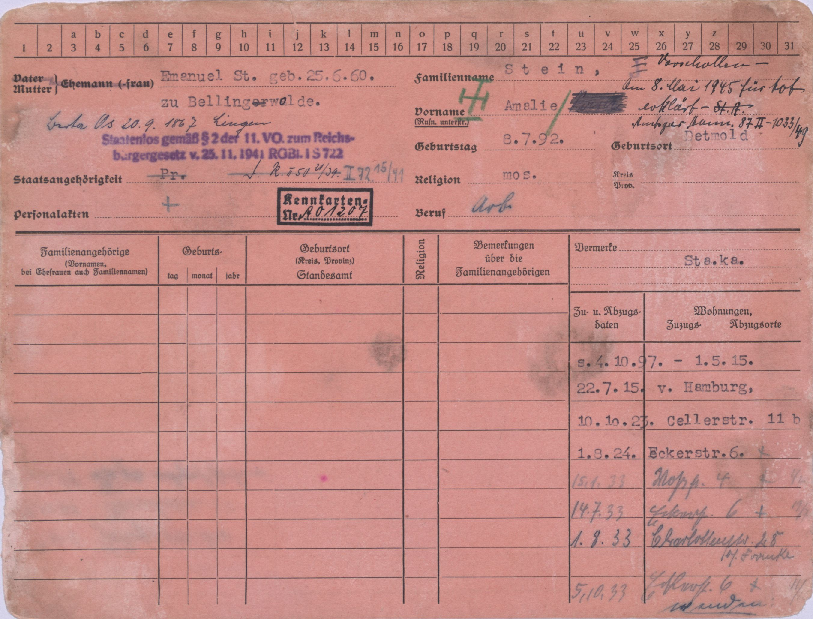 a b c d e f g h i j k l m n o p q r s t u v w x y z
1 2 3 4 5 6 7 8 9 10 11 12 13 14 15 16 17 18 19 20 21 22 23 24 25 26 27 28 29 30 31
Vater
Mutter
Ehemann (-frau) Emanuel St. geb. 25.6.60.
zu Bellingerwolde.
20.9.1867 Lingen
Staatenlos gemäß § 2 der 11. VO. zum Reichs-
bürgergesetz v. 25.11.1941 RGBl. I S 722
Staatsangehörigkeit Pr.
Personalakten +
Kennkarten-
Nr. A01207
Familienname Stein,
Verschollen -
am 8. Mai 1945 für tot
erklärt - St.A.
87 II - 1033/49
Vorname Amalie
(Rufn. unterstr.)
Geburtstag 8.7.92. Geburtsort Detmold
Religion mos. Kreis
Prov.
Beruf Arb.
Familienangehörige
(Vornamen,
bei Ehefrauen auch Familiennamen)
Geburts-
tag monat jahr
Geburtsort
(Kreis, Provinz)
Standesamt
Religion
Bemerkungen
über die
Familienangehörigen
Vermerke
Sta.ka.
Zu- u. Abzugs-
daten
Wohnungen,
Zuzugs- Abzugsorte
s.4.10.97. - 1.5.15.
22.7.15. v. Hamburg,
10.10.23. Cellerstr. 11 b
1.8.24. Eckerstr.6.
14.7.33 6 +
1.8.33 Charlottenstr. 28
bei Francke
5.10.33 6 +
wenden